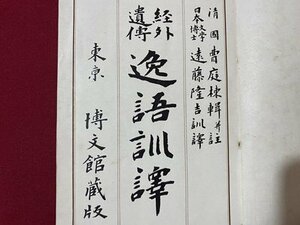 清國 曹庭棟輯并註
日本文學博士 遠藤隆吉訓譯
経外遺傳
逸語訓譯
東京 博文館藏版